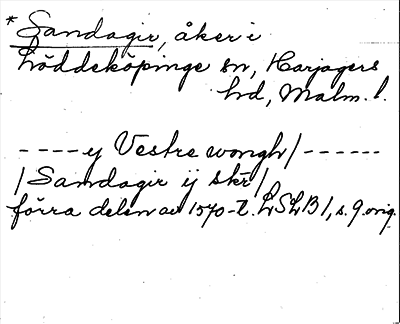 * Sandagir, åker i
Löddeköpinge sn, Harjagers
hd, Malm. l.
----y Vestre wongh/------
/Sandagir ij skr/
förra delen av 1570-t. LSLB 1, s. 9 orig.